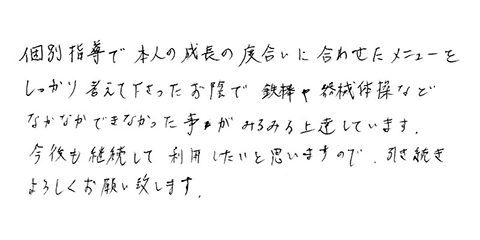 個別指導で本人の成長の度合いに合わせたメニューを
しっかり考えて下さったお陰で 鉄棒や器械体操など
なかなかできなかった事がみるみる上達しています.
今後も継続して利用したいと思いますので、引き続き
よろしくお願い致します.